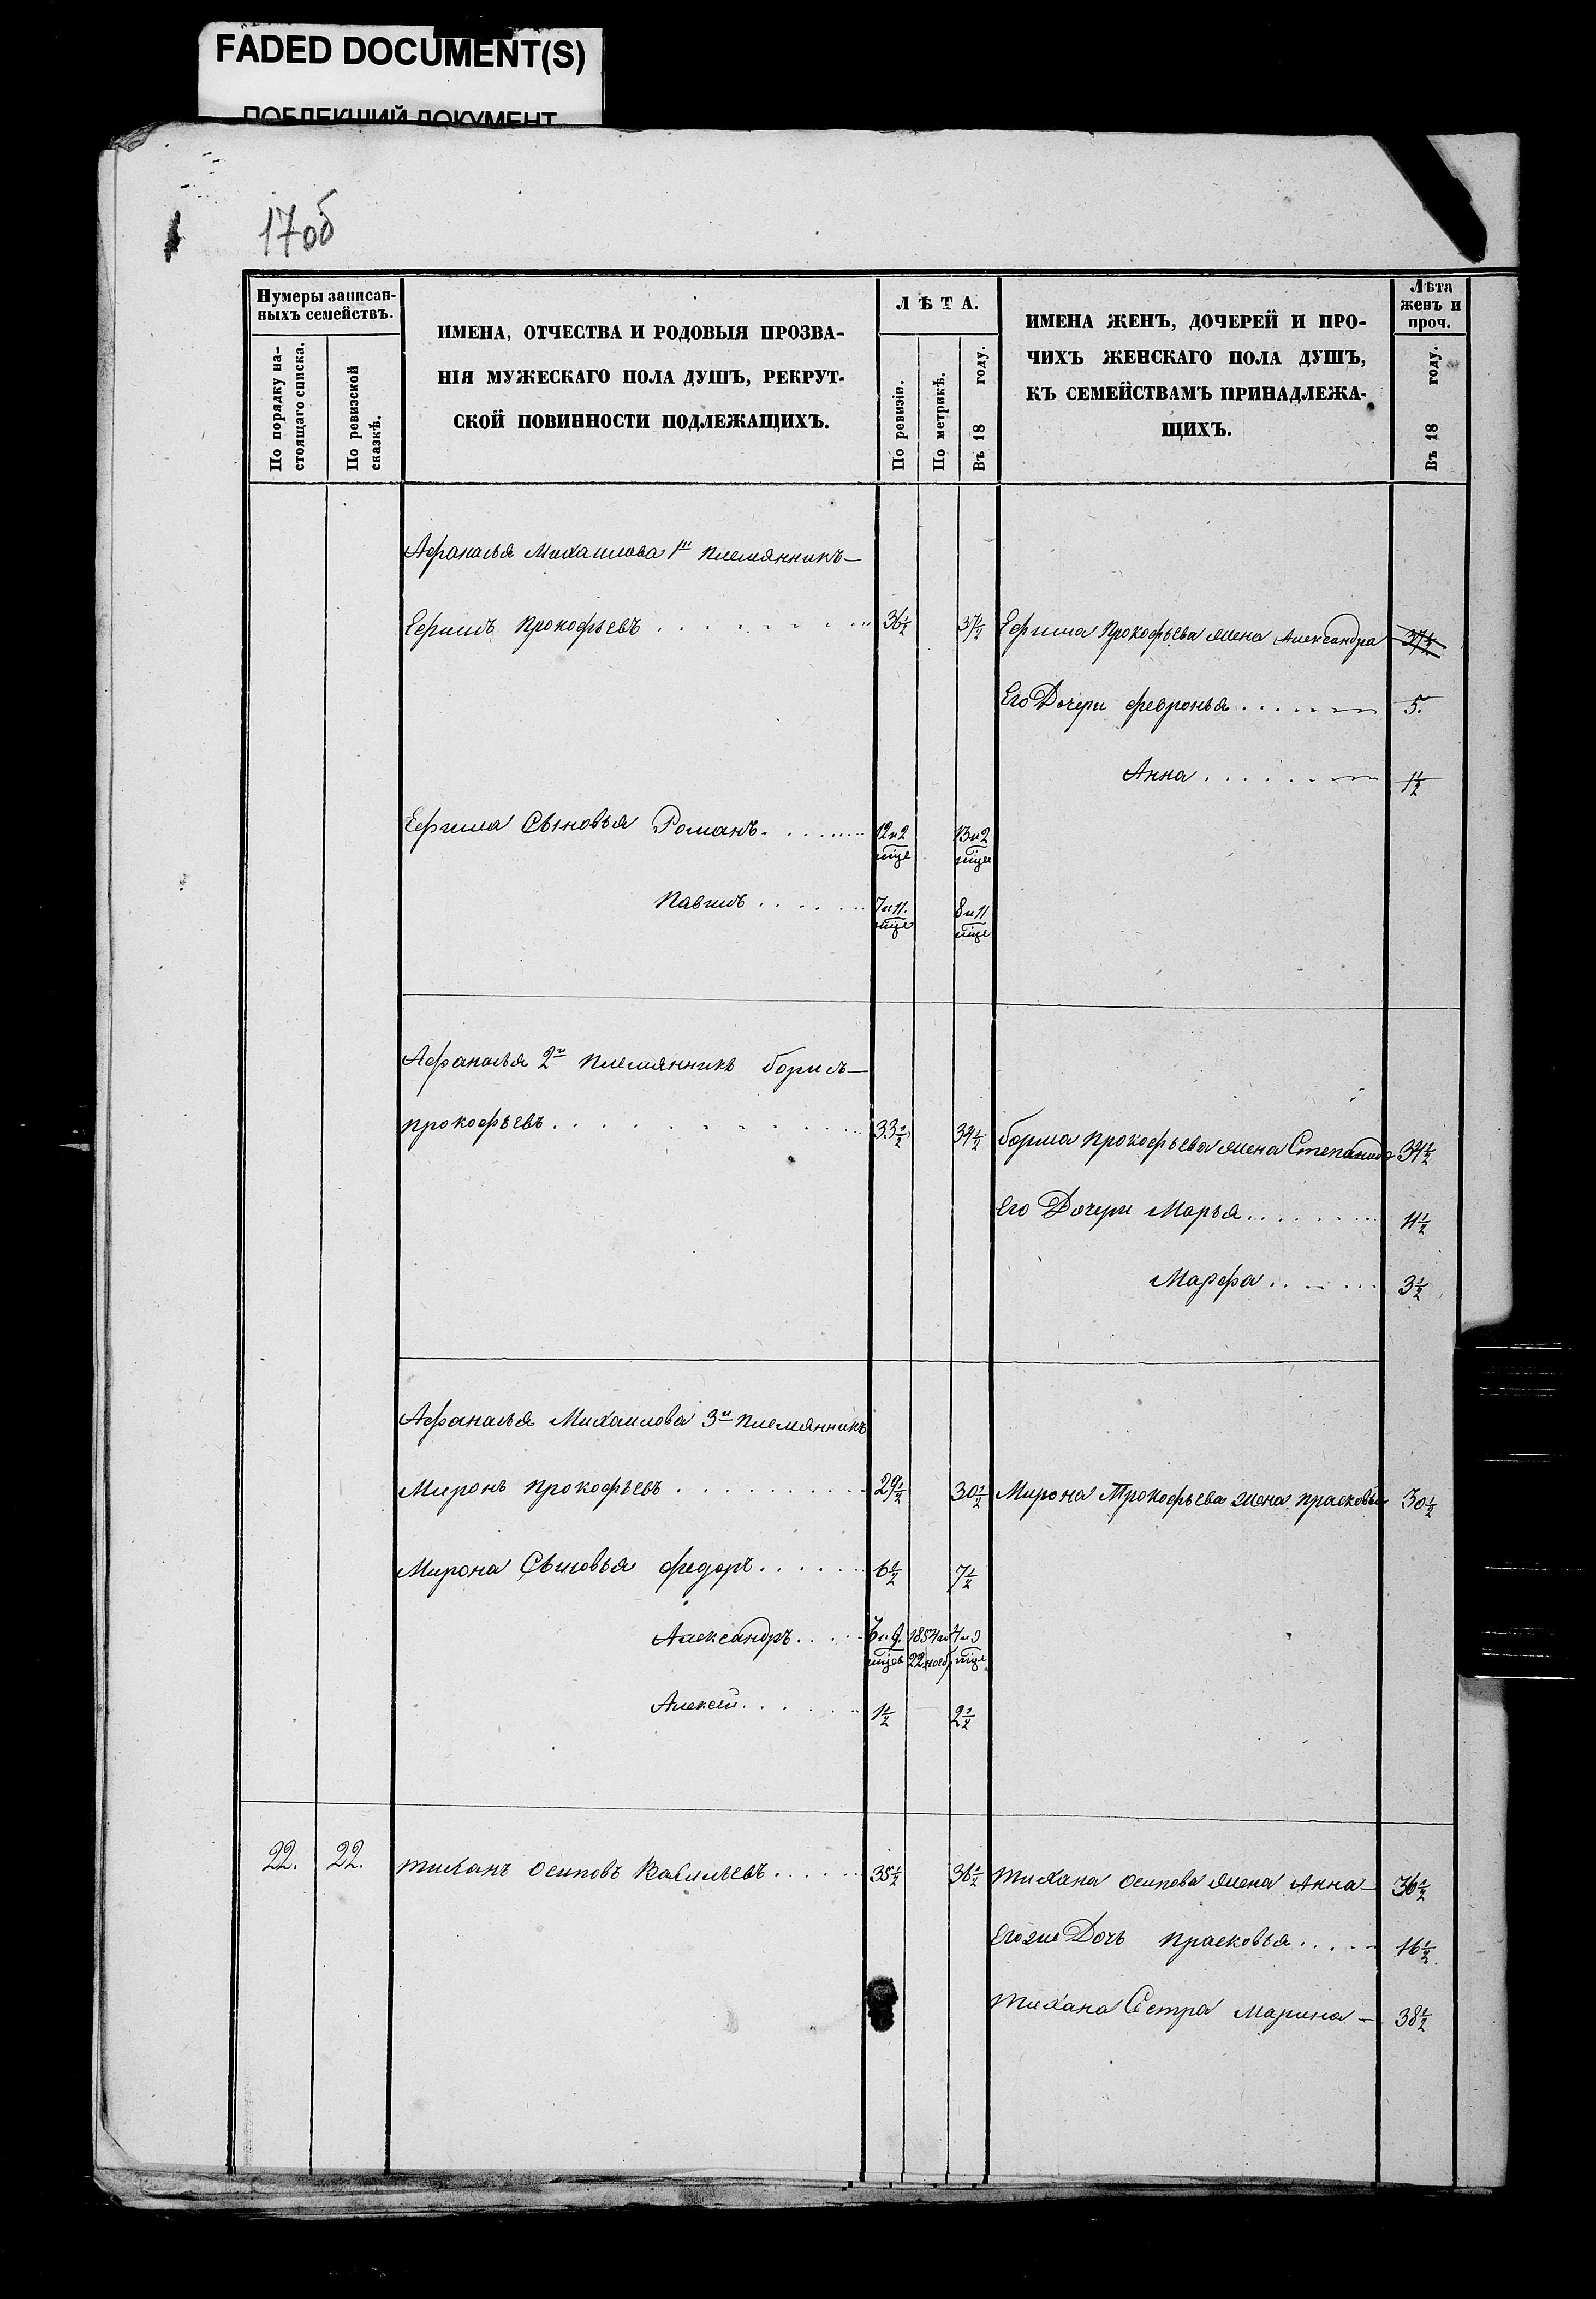 FADED DOCUMENT(S)
ПОБЛЕКШИЙ ДОКУМЕНТ
17об
Нумеры записан-
ныхъ семействъ.
По порядку на-
стоящаго списка.
По ревизской
сказкѣ.
ИМЕНА, ОТЧЕСТВА И РОДОВЫЯ ПРОЗВА-
НІЯ МУЖЕСКАГО ПОЛА ДУШЪ, РЕКРУТ-
СКОЙ ПОВИННОСТИ ПОДЛЕЖАЩИХЪ.
ЛѢТА.
По ревизіи.
По метрикѣ.
Въ 18 году.
ИМЕНА ЖЕНЪ, ДОЧЕРЕЙ И ПРО-
ЧИХЪ ЖЕНСКАГО ПОЛА ДУШЪ,
КЪ СЕМЕЙСТВАМЪ ПРИНАДЛЕЖА-
ЩИХЪ.
Лѣта
женъ и
проч.
Въ 18 году.
Афанасья Михаилова 1й племянникъ—
Ефимъ Прокофьевъ 36½ 37½ Ефима Прокофьева жена Александра 37½
Его Дочери Февронья 5.
Анна 1½
Ефима Сыновья Романъ 12 и 2 мѣце 13 и 2 мѣце
Павилъ 7 и 11 мѣце 8 и 11 мѣце
Афанасья 2й племянникъ борисъ—
прокофьевъ 33½ 34½ бориса прокофьева жена Степанида 34½
Его Дочери Марья 11½
Марфа 3½
Афанасья Михаилова 3й племянникъ
Миронъ прокофьевъ 29½ 30½ Мирона Прокофьева жена прасковья 30½
Мирона Сыновья федоръ 6½ 7½
Александръ 1854го 22 нояб
Алексей 1½ 2½
22. 22. тиханъ осиповъ Васильевъ 35½ 36½ тихана осипова жена Анна 36½
Егоже Дочь прасковья 16½
тихана Сестра Марина — 38½